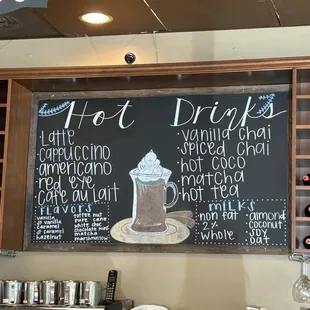 Hot Drinks
Latte
·cappuccino
·americano
·red eye
·cafe au lait
·vanilla chai
·spiced chai
·hot coco
·matcha
·hot tea
Flavors
vanilla
sf vanilla
caramel
sf caramel
hazelnut
toffee nut
pure cane
white choc
chocolate mint
matcha
marshmallow
Milks
non fat
2%
whole
almond
coconut
soy
oat